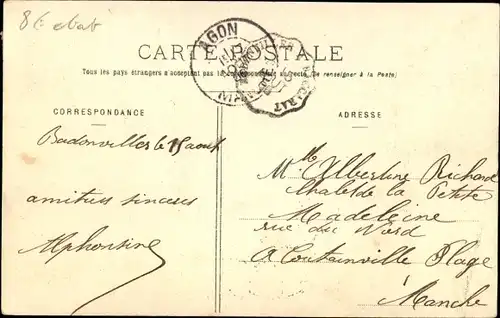 8€
AGON
CARTE POSTALE
Tous les pays étrangers n'acceptent pas la correspondance au recto (Se renseigner à la Poste)
CORRESPONDANCE
ADRESSE
Badonviller le 15 aout
amitiés sincères
Alphonsine
Mlle Albertine Richard
Chalet de la Petite
Madeleine
rue du Nord
a Coutainville Plage
Manche